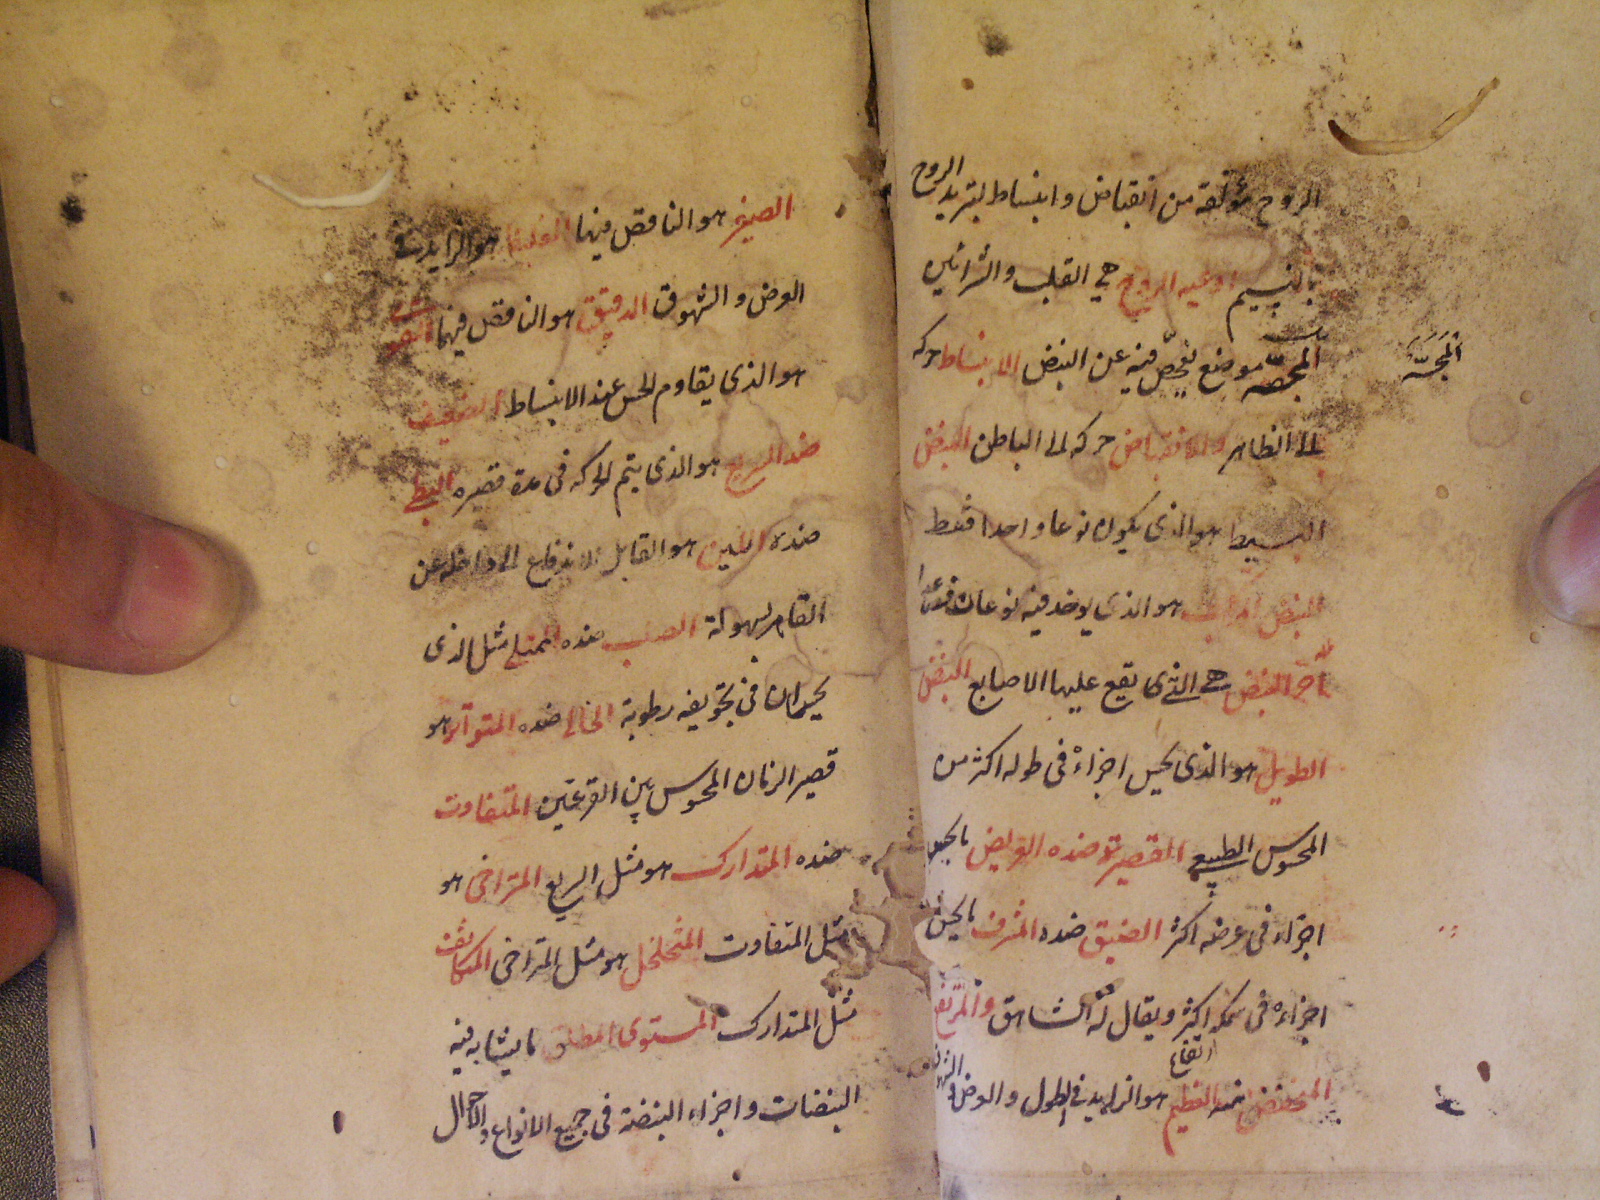 الروح مؤلفة من انقباض وانبساط لتبريد الروح
بالنسيم اوعية الروح هي القلب والشرائين
المجسّه موضع يفحّص فيه عن النبض الانبساط حركه
المَجَسَّة
الى الظاهر والانقباض حركه الى الباطن النبض
البسيط هو الذى يكون نوعا واحدا فقط
النبض المركب هو الذى يوخد فيه نوعان فصاعدا
اجزا النبض هي التى يقع عليها الاصابع النبض
الطويل هو الذى يحس اجزاءه فى طوله اكثر من
المحسوس الطبيعي القصير ضده العريض ما يحس
اجزاءه فى عرضه اكثر الضيق ضده المشرف ما يحس
اجزاءه فى سمكه اكثر ويقال له الشاهق والمرتفع
المنخفض ضده العظيم هو الزايد في الطول والعرض و
ارتفاع
الصغير هو الناقص فيها الغليظ هو الزايد في
العرض و الشهوق الدقيق هو الناقص فيهما
هو الذى يقاوم الحس عند الانبساط الضعيف
ضده السريع هو الذى يتم الحركه فى مدة قصيره البطي
ضده اللين هو القابل للاندفاع الى داخله عن
القامز بسهولة الصلب ضده الممتلي مثل الذى
يحس ان فى تجويفه رطوبة الخالى ضده المتواتر هو
قصير الزمان المحسوس بين القرعتين المتفاوت
ضده المتدارك هو مثل السريع المتراخى هو
مثل المتفاوت المتخلخل هو مثل المتراخى المتكاثف
مثل المتدارك المستوى المطلق ما يتشابه فيه
النبضات واجزاء النبضة فى جميع الانواع والاحوال